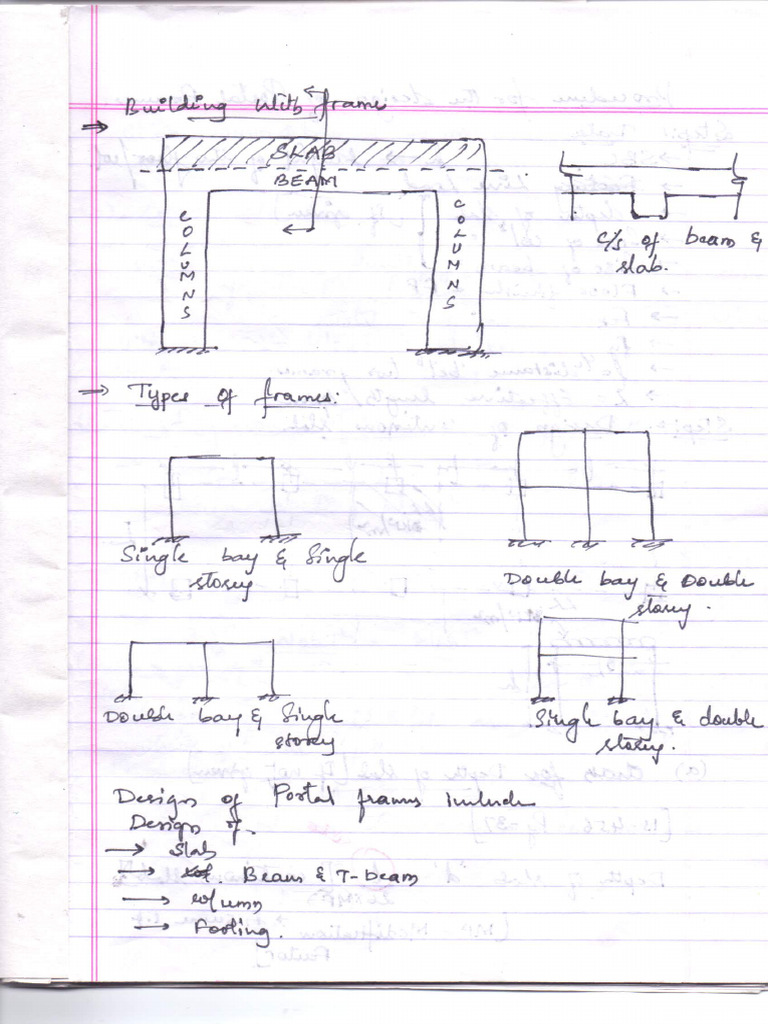 ⇒ Building with frame
SLAB
BEAM
COLUMNS
COLUMNS
c/s of beam &
slab.
⇒ Types of frames:
Single bay & Single
storey
Double bay & Double
storey.
Double bay & Single
storey
Single bay & double
storey.
Design of Portal frames include
Design of.
→ Slab
→ Beam & T-beam
→ column
→ Footing.